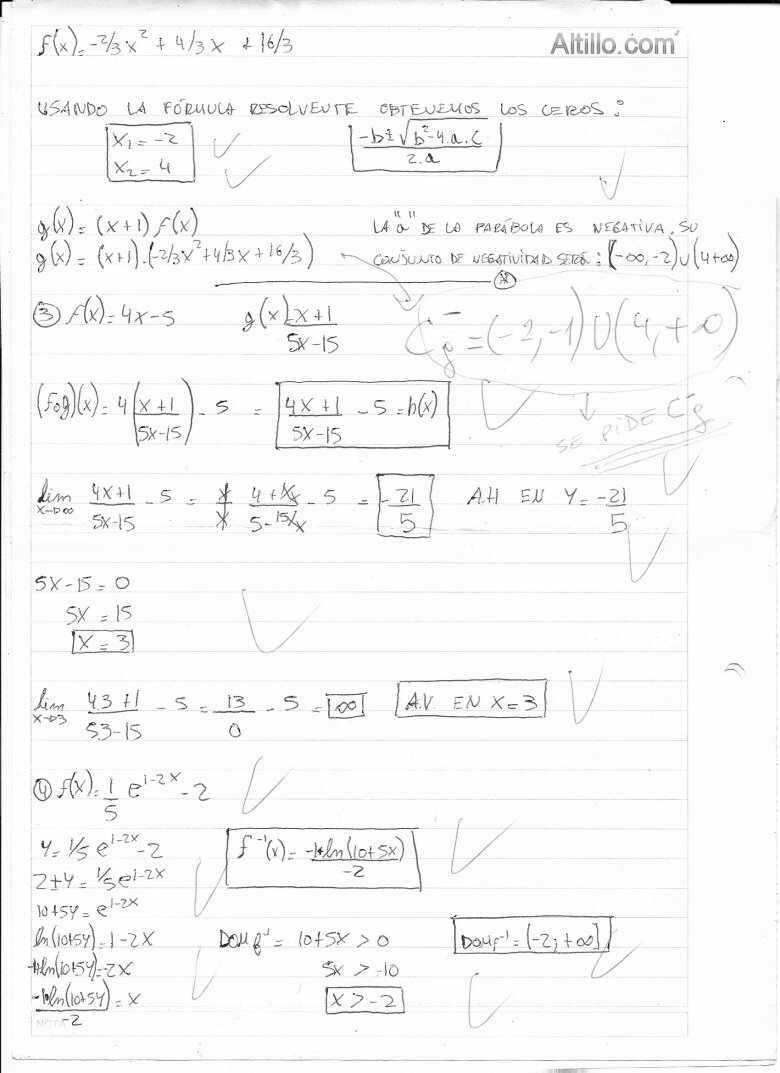 f(x)=-2/3x² + 4/3x + 16/3
Altillo.com
USANDO LA FÓRMULA RESOLVENTE OBTENEMOS LOS CEROS:
x₁ = -2
x₂ = 4
-b±√(b²-4.a.c)/2.a
g(x) = (x+1) f(x)
g(x) = (x+1).(-2/3x²+4/3x+16/3)
LA "a" DE LA PARÁBOLA ES NEGATIVA, SU
CONJUNTO DE NEGATIVIDAD SERÁ: (-∞,-2)∪(4+∞)
C⁻g = (-2,-1) ∪ (4,+∞)
SE PIDE C⁻g
③ f(x)=4x-5 g(x)=x+1/5x-15
(fog)(x)= 4(x+1/5x-15) - 5 = 4x+1/5x-15 - 5 = h(x)
lim x→∞ 4x+1/5x-15 - 5 = x/x 4+1/x/5-15/x - 5 = -21/5 A.H EN Y = -21/5
5x-15=0
5x = 15
x = 3
lim x→3 4.3+1/5.3-15 - 5 = 13/0 - 5 = ∞ A.V. EN X=3
④ f(x)=1/5 e^1-2x - 2
y = 1/5 e^1-2x - 2
2+y = 1/5 e^1-2x
10+5y = e^1-2x
ln(10+5y) = 1-2x
-1+ln(10+5y)=-2x
-1+ln(10+5y)/-2 = x
f⁻¹(x) = -1+ln(10+5x)/-2
Dom f⁻¹ = 10+5x > 0
5x > -10
x > -2
Dom f⁻¹ = (-2; +∞]
NOTA